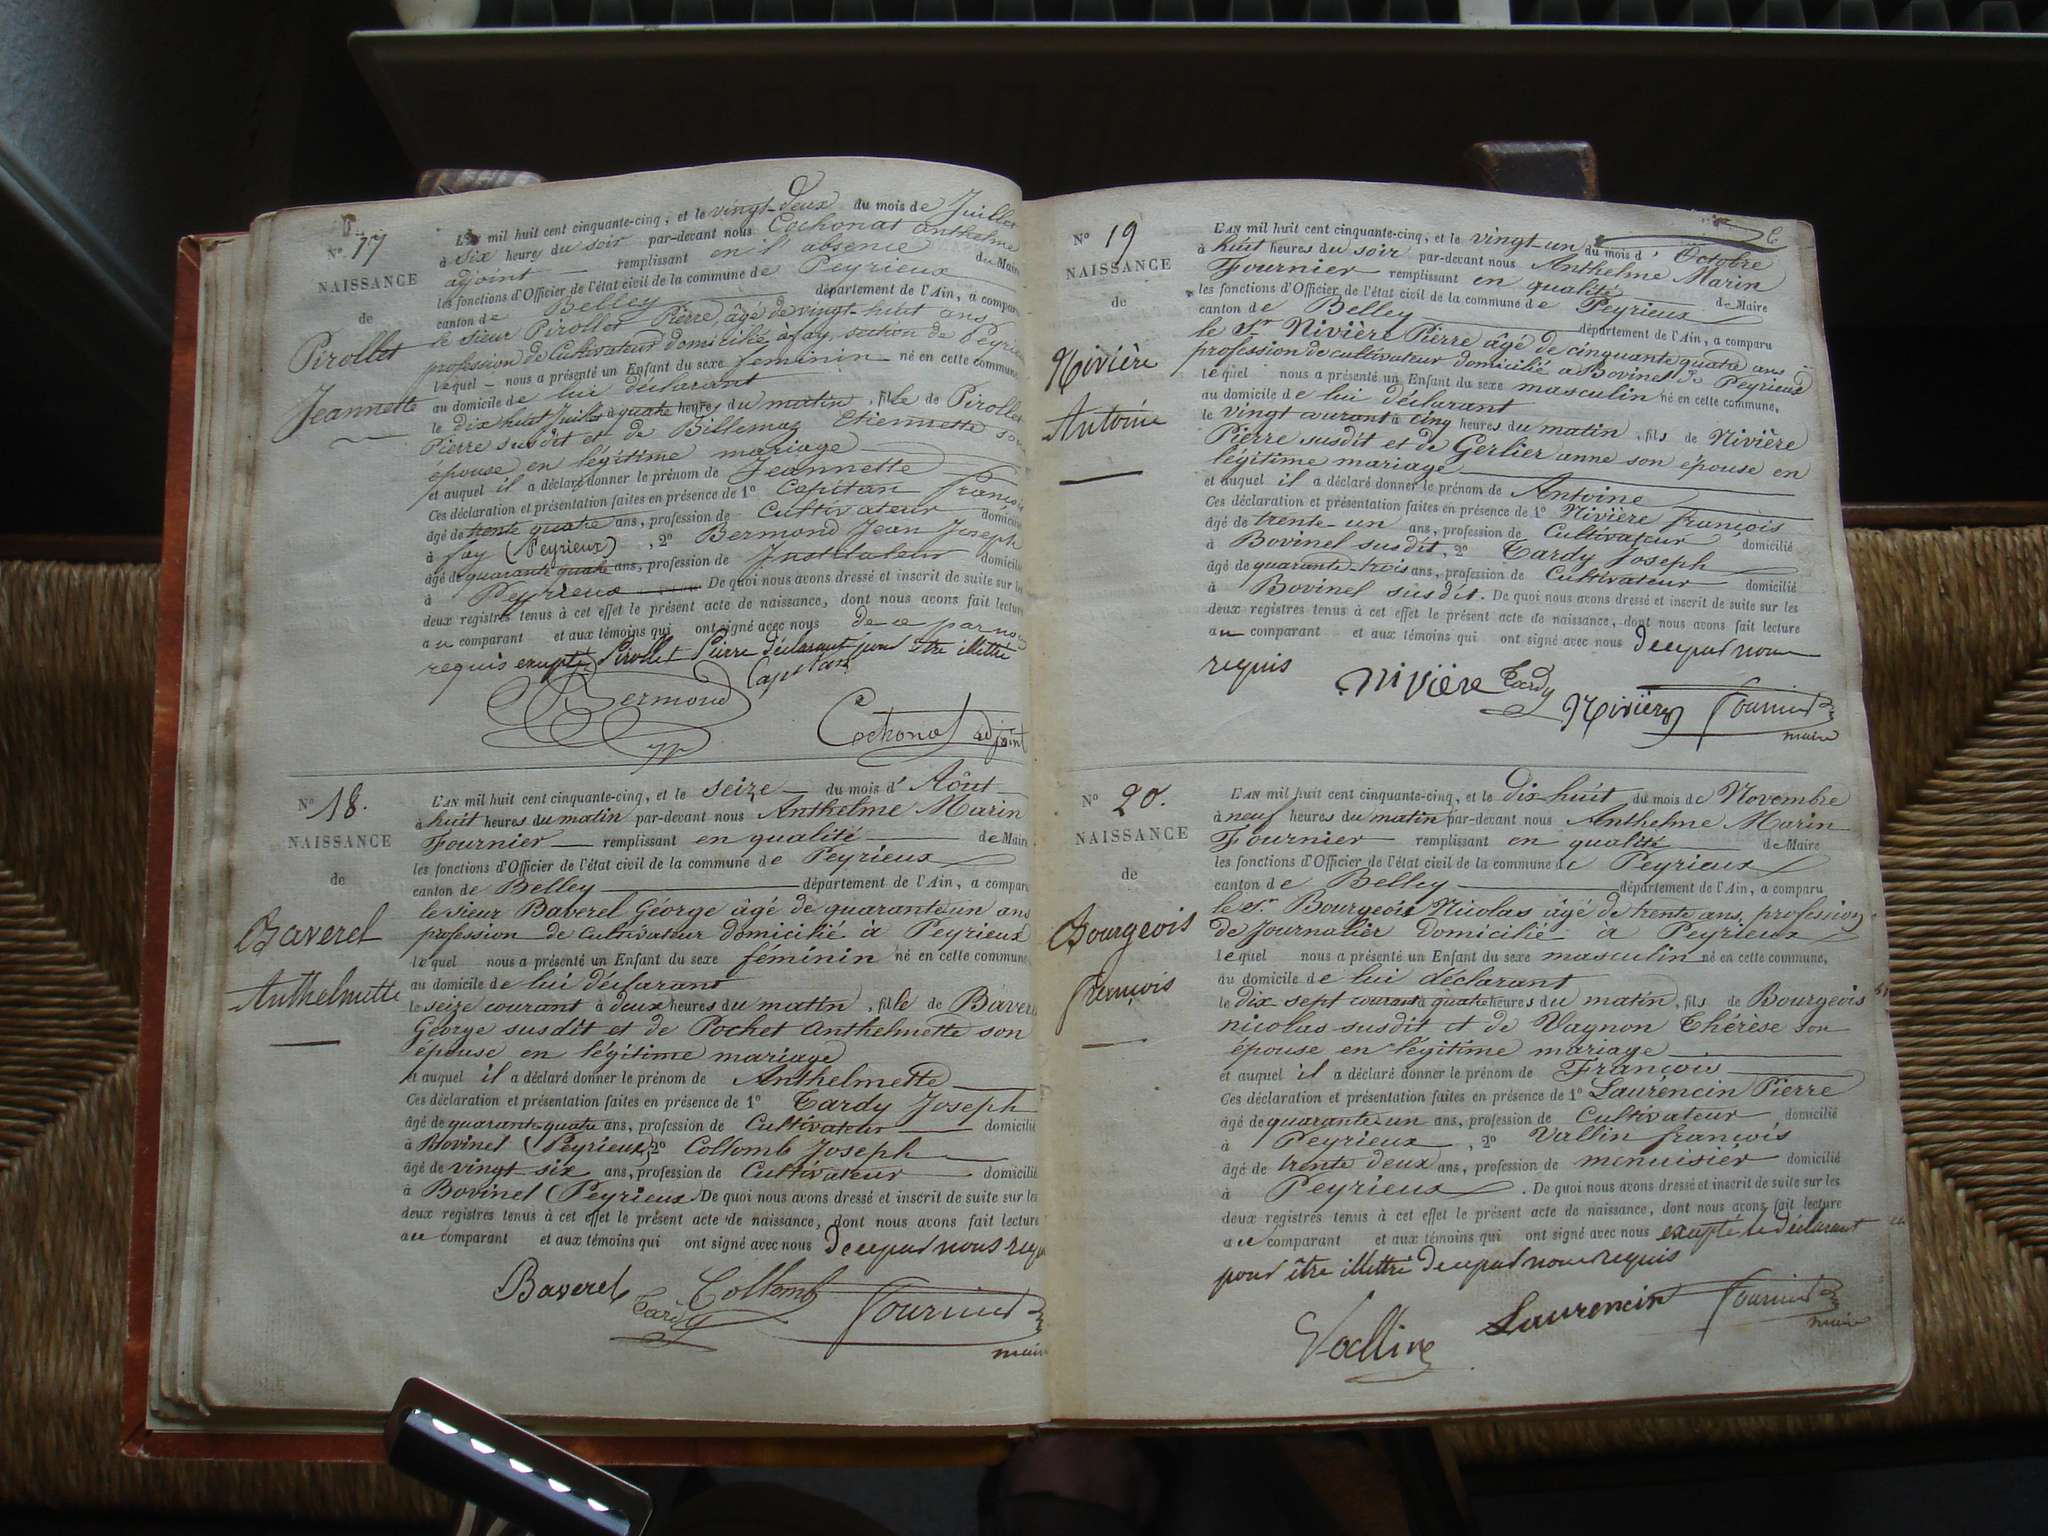 N° 17
NAISSANCE
de
Pirollet
Jeannette
L'AN mil huit cent cinquante-cinq, et le vingt-deux du mois de Juillet
à six heures du soir par-devant nous Cochonat Anthelme
adjoint remplissant en l'absence du Maire
les fonctions d'Officier de l'état civil de la commune de Peyrieux
canton de Belley département de l'Ain, a comparu
le sieur Pirollet Pierre, âgé de vingt-huit ans
profession de Cultivateur domicilié à fay, section de Peyrieux
lequel nous a présenté un Enfant du sexe féminin né en cette commune
au domicile de lui déclarant
le dix huit Juillet à quatre heures du matin, fille de Pirollet
Pierre susdit et de Billemaz Etiennette son
épouse en légitime mariage
et auquel il a déclaré donner le prénom de Jeannette
Ces déclaration et présentation faites en présence de 1° Capitan françois
âgé de trente quatre ans, profession de Cultivateur domicilié
à fay (Peyrieux), 2° Bermond Jean Joseph
âgé de quarante quatre ans, profession de Instituteur domicilié
à Peyrieux De quoi nous avons dressé et inscrit de suite sur les
deux registres tenus à cet effet le présent acte de naissance, dont nous avons fait lecture
au comparant et aux témoins qui ont signé avec nous de ce par nous
requis excepté Pirollet Pierre déclarant pour être illettré
Bermond Capitan
Cochonat adjoint
N° 18.
NAISSANCE
de
Baverel
Anthelmette
L'AN mil huit cent cinquante-cinq, et le seize du mois d'Août
à huit heures du matin par-devant nous Anthelme Marin
Fournier remplissant en qualité de Maire
les fonctions d'Officier de l'état civil de la commune de Peyrieux
canton de Belley département de l'Ain, a comparu
le sieur Baverel George âgé de quarante-un ans
profession de Cultivateur domicilié à Peyrieux
lequel nous a présenté un Enfant du sexe féminin né en cette commune
au domicile de lui déclarant
le seize courant à deux heures du matin, fille de Baverel
George susdit et de Pochet Anthelmette son
épouse en légitime mariage
et auquel il a déclaré donner le prénom de Anthelmette
Ces déclaration et présentation faites en présence de 1° Tardy Joseph
âgé de quarante-quatre ans, profession de Cultivateur domicilié
à Bovinel (Peyrieux) 2° Collomb Joseph
âgé de vingt six ans, profession de Cultivateur domicilié
à Bovinel (Peyrieux. De quoi nous avons dressé et inscrit de suite sur les
deux registres tenus à cet effet le présent acte de naissance, dont nous avons fait lecture
au comparant et aux témoins qui ont signé avec nous de ce par nous requis
Baverel Tardy Collomb Fournier
maire
N° 19
NAISSANCE
de
Nivière
Antoine
L'AN mil huit cent cinquante-cinq, et le vingt un du mois d'Octobre
à huit heures du soir par-devant nous Anthelme Marin
Fournier remplissant en qualité de Maire
les fonctions d'Officier de l'état civil de la commune de Peyrieux
canton de Belley département de l'Ain, a comparu
le Sr Nivière Pierre âgé de cinquante quatre ans
profession de cultivateur domicilié à Bovinel de Peyrieux
lequel nous a présenté un Enfant du sexe masculin né en cette commune,
au domicile de lui déclarant
le vingt courant à cinq heures du matin, fils de Nivière
Pierre susdit et de Gerlier anne son épouse en
légitime mariage
et auquel il a déclaré donner le prénom de Antoine
Ces déclaration et présentation faites en présence de 1° Nivière françois
âgé de trente-un ans, profession de Cultivateur domicilié
à Bovinel susdit, 2° Tardy Joseph
âgé de quarante-trois ans, profession de Cultivateur domicilié
à Bovinel susdit. De quoi nous avons dressé et inscrit de suite sur les
deux registres tenus à cet effet le présent acte de naissance, dont nous avons fait lecture
au comparant et aux témoins qui ont signé avec nous de ce par nous
requis
Nivière Tardy Nivière Fournier
maire
N° 20.
NAISSANCE
de
Bourgeois
françois
L'AN mil huit cent cinquante-cinq, et le dix huit du mois de Novembre
à neuf heures du matin par-devant nous Anthelme Marin
Fournier remplissant en qualité de Maire
les fonctions d'Officier de l'état civil de la commune de Peyrieux
canton de Belley département de l'Ain, a comparu
le Sr Bourgeois Nicolas âgé de trente ans, profession
de Journalier domicilié à Peyrieux
lequel nous a présenté un Enfant du sexe masculin né en cette commune,
au domicile de lui déclarant
le dix sept courant à quatre heures du matin, fils de Bourgeois
nicolas susdit et de Vagnon Thérèse son
épouse en légitime mariage
et auquel il a déclaré donner le prénom de François
Ces déclaration et présentation faites en présence de 1° Laurencin Pierre
âgé de quarante-un ans, profession de Cultivateur domicilié
à Peyrieux, 2° Vallin françois
âgé de trente deux ans, profession de menuisier domicilié
à Peyrieux. De quoi nous avons dressé et inscrit de suite sur les
deux registres tenus à cet effet le présent acte de naissance, dont nous avons fait lecture
au comparant et aux témoins qui ont signé avec nous excepté le déclarant
pour être illettré de ce par nous requis
Vallin Laurencin Fournier
maire